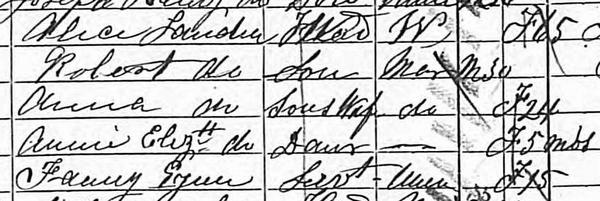 Alice Landen Head W F 65
Robert do Son Mar M 30
Anna do Sons Wife do F 24
Annie Elizth do Daur — F 5 mths
Fanny Servt Unm F 15